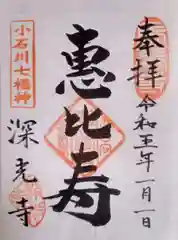 奉拝
令和五年一月一日
恵比寿
小石川七福神
深光寺